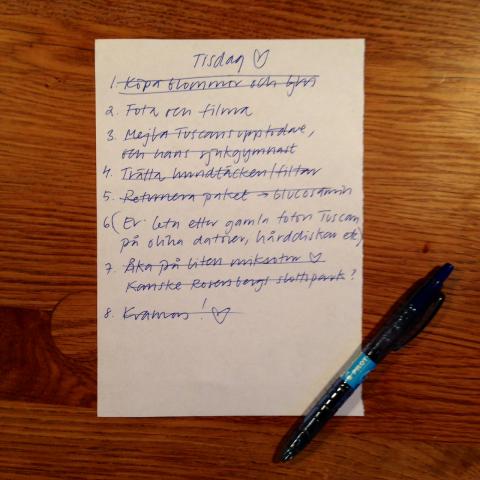 Tisdag ♡
1. Köpa blommor och ljus
2. Fota och filma
3. Mejla Tuscans uppfödare,
och hans sjukgymnast
4. Tvätta hundtäcken/filtar
5. Returnera paket → Glucosamin
6 (Ev. leta efter gamla foton Tuscan
på olika datorer, hårddiskar etc)
7. Åka på liten mikrotur ♡
Kanske Rosersbergs slottspark?
8. Kramas! ♡
PILOT